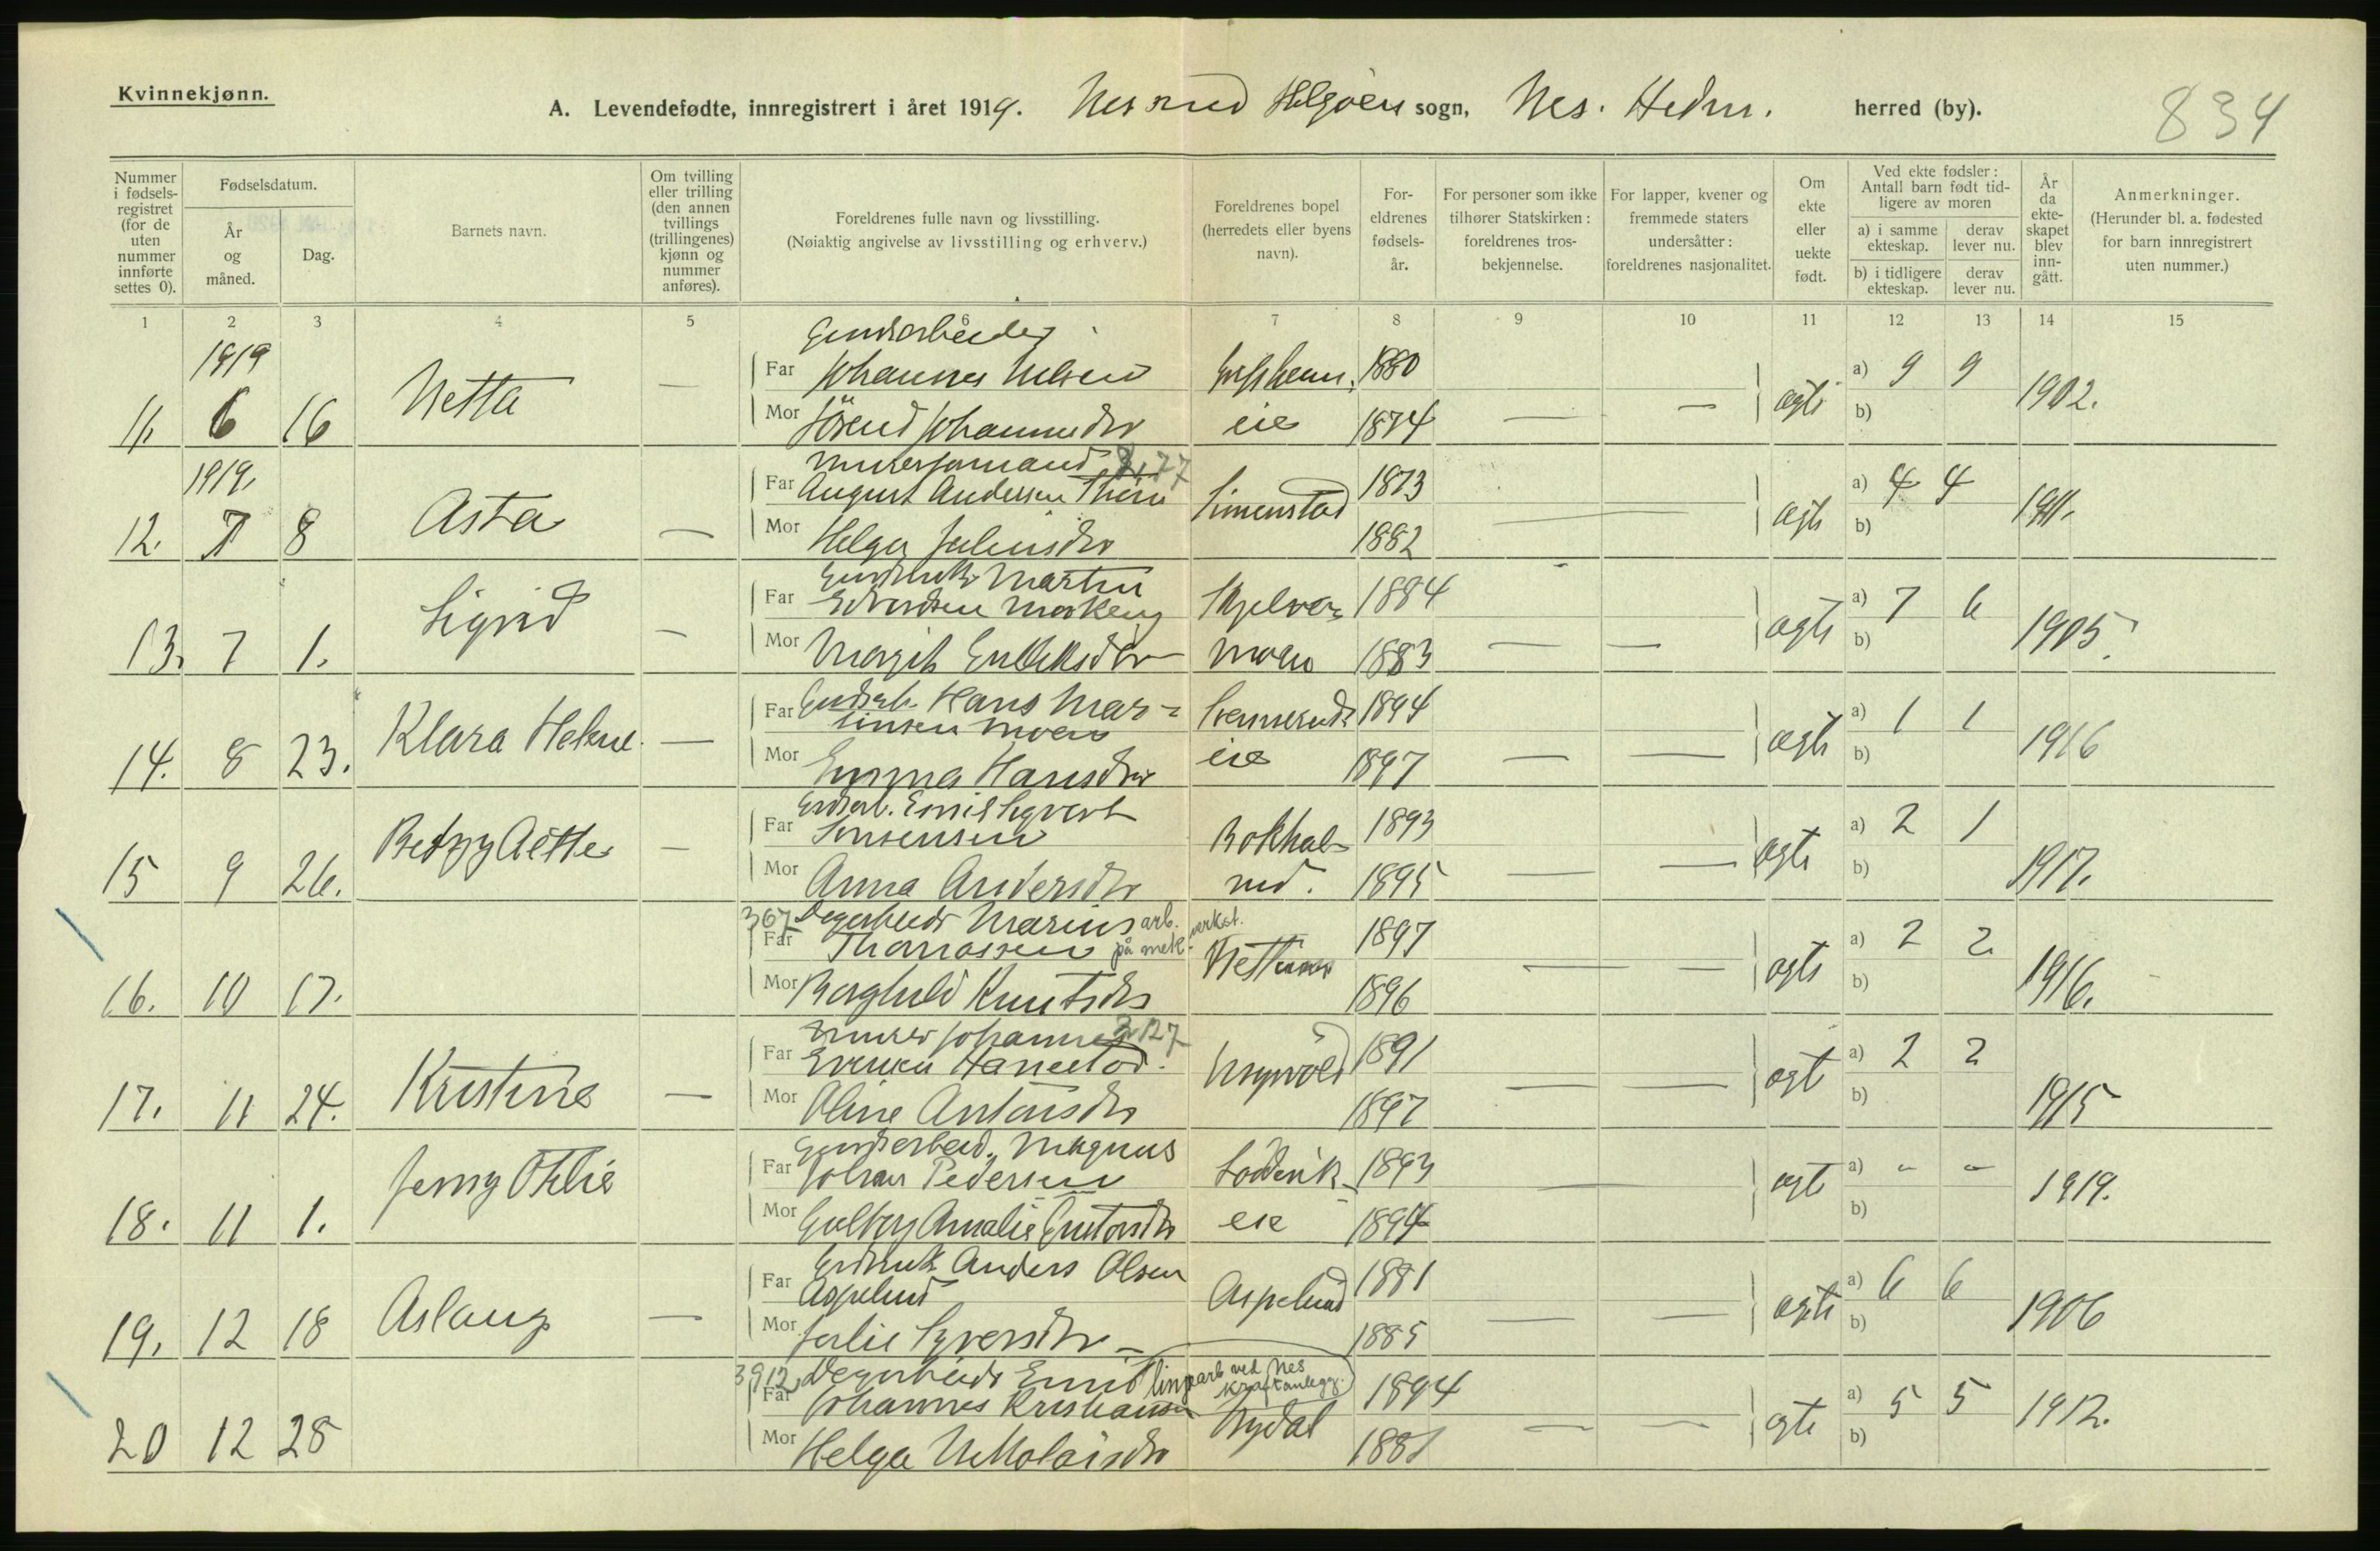 Kvinnekjønn.
A. Levendefødte, innregistrert i året 1919. Nes med Helgøen sogn, Nes. Hedm. herred (by).
834
Nummer i fødsels- registret (for de uten nummer innførte settes 0).
Fødselsdatum.
År og måned.
Dag.
Barnets navn.
Om tvilling eller trilling (den annen tvillings (trillingenes) kjønn og nummer anføres).
Foreldrenes fulle navn og livsstilling.
(Nøiaktig angivelse av livsstilling og erhverv.)
Foreldrenes bopel (herredets eller byens navn).
For- eldrenes fødsels- år.
For personer som ikke tilhører Statskirken: foreldrenes tros- bekjennelse.
For lapper, kvener og fremmede staters undersåtter: foreldrenes nasjonalitet.
Om ekte eller uekte født.
Ved ekte fødsler: Antall barn født tid- ligere av moren
a) i samme ekteskap.
derav lever nu.
b) i tidligere ekteskap.
derav lever nu.
År da ekte- skapet blev inn- gått.
Anmerkninger.
(Herunder bl. a. fødested for barn innregistrert uten nummer.)
1 2 3 4 5 7 8 9 10 11 12 13 14 15
Gårdsarbeider
1919
Far Johannes Nilsen 1880 a) 9 9
11. 6 16 Netta — Mor Johannesdtr eie 1874 — — ægte b) 1902.
1919.
Far August Andersen 1873 a) 4 4
12. 7 8 Asta — Mor Helga Juliusdtr Simenstad 1882 — ægte b) 1911.
Martin
Far Edvardsen 1884 a) 7 6
13. 7 1. Sigrid — Mor Margit 1883 — — ægte b) 1905.
Gårdsarb. Hans Mar-
Far tinsen Moen 1894 a) 1 1
14. 8 23. Klara Helene — Mor Emma Hansdtr eie 1897 — — ægte b) 1916
Gårdsarb. Emil Sigvart
Far 1893 a) 2 1
15 9 26. — Mor Anna Andersdtr 1895 — — ægte b) 1917.
367 Dagarbeider Marius arb. på mek. verkst.
Far Thomassen 1897 a) 2 2
16. 10 17. Mor Borghild Knutsdtr 1896 — — ægte b) 1916.
Murer Johannes 2127
Far 1891 a) 2 2
17. 11 24. Kristine — Mor Oline Antonsdtr 1897 — — ægte b) 1915
Gårdsarbeid. Magnus
Far Johan Pedersen 1893 a) - -
18. 11 1. Jenny Otelie Mor Gulborg Amalie Gustavsdtr eie 1894 — ægte b) 1919.
Gårdbruk. Anders Olsen
Far Aspelund Aspelund 1881 a) 6 6
19. 12 18 Aslaug — Mor Julie Syversdtr 1885 — — ægte b) 1906
3912 Dagarbeider Emil linjearb ved Nes kraftanlegg.
Far Johannes Kristiansen Nydal 1894 a) 5 5
20 12 28 Mor Helga Nikolaisdtr 1881 — — ægte b) 1912.